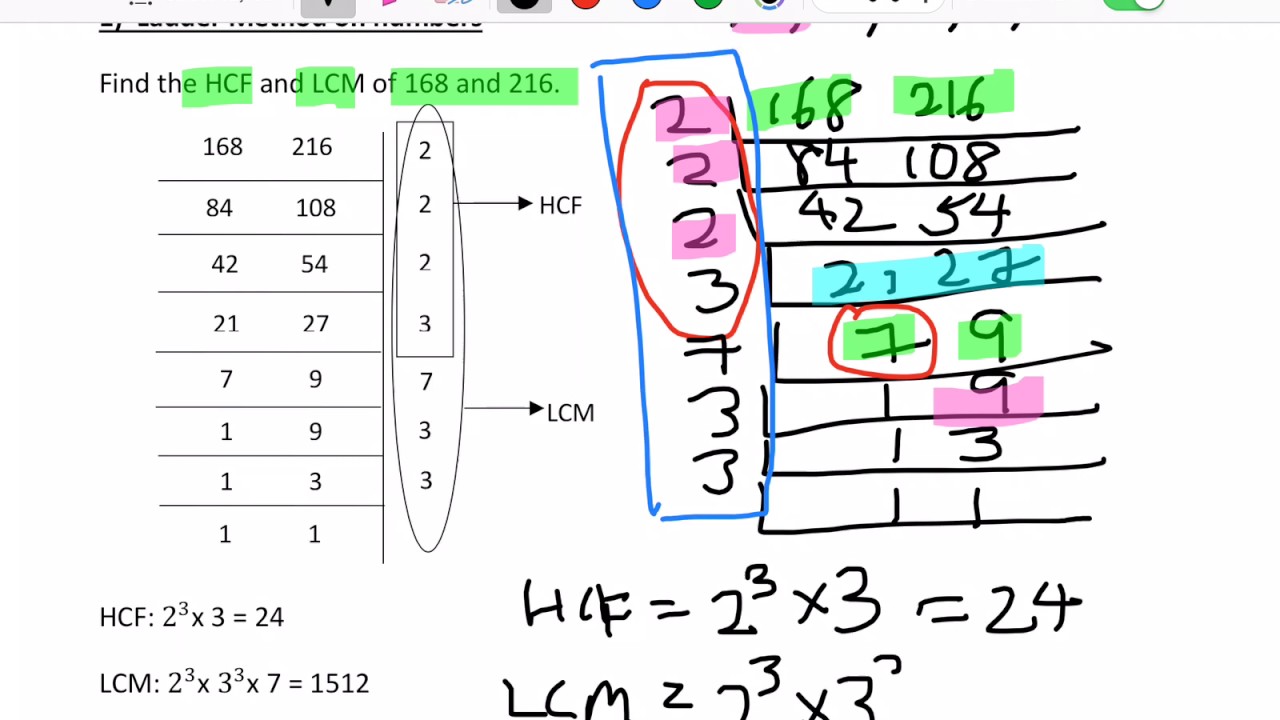 Find the HCF and LCM of 168 and 216.
168 216 2
84 108 2
HCF
42 54 2
21 27 3
7 9 7
LCM
1 9 3
1 3 3
1 1
HCF: 2³x 3 = 24
LCM: 2³x 3³x 7 = 1512
2 168 216
2 84 108
2 42 54
3 21 27
7 7 9
3 1 9
3 1 3
1 1
HCF = 2³ × 3 = 24
LCM = 2³ × 3³